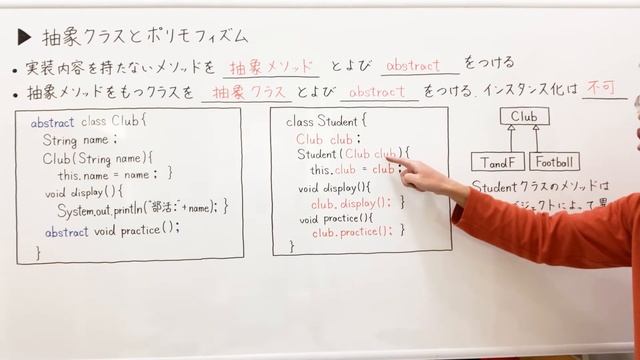 ▶ 抽象クラスとポリモフィズム
• 実装内容を持たないメソッドを 抽象メソッド とよび abstract をつける
• 抽象メソッドをもつクラスを 抽象クラス とよび abstract をつける. インスタンス化は 不可
abstract class Club{
String name;
Club(String name){
this.name = name; }
void display(){
System.out.println("部活:"+name); }
abstract void practice();
}
class Student{
Club club;
Student(Club club){
this.club = club;
void display(){
club.display(); }
void practice(){
club.practice(); }
}
Club
TandF Football
Studentクラスのメソッドは
ブジェクトによって